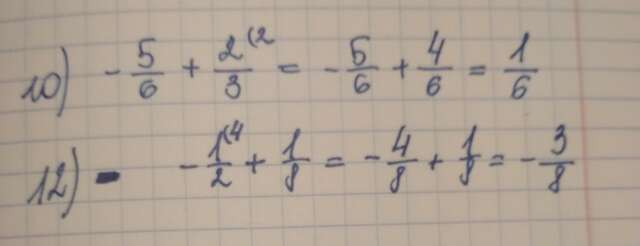 10) - 5/6 + 2/3 (2 = - 5/6 + 4/6 = 1/6
12) - - 1/2 (4 + 1/8 = - 4/8 + 1/8 = - 3/8